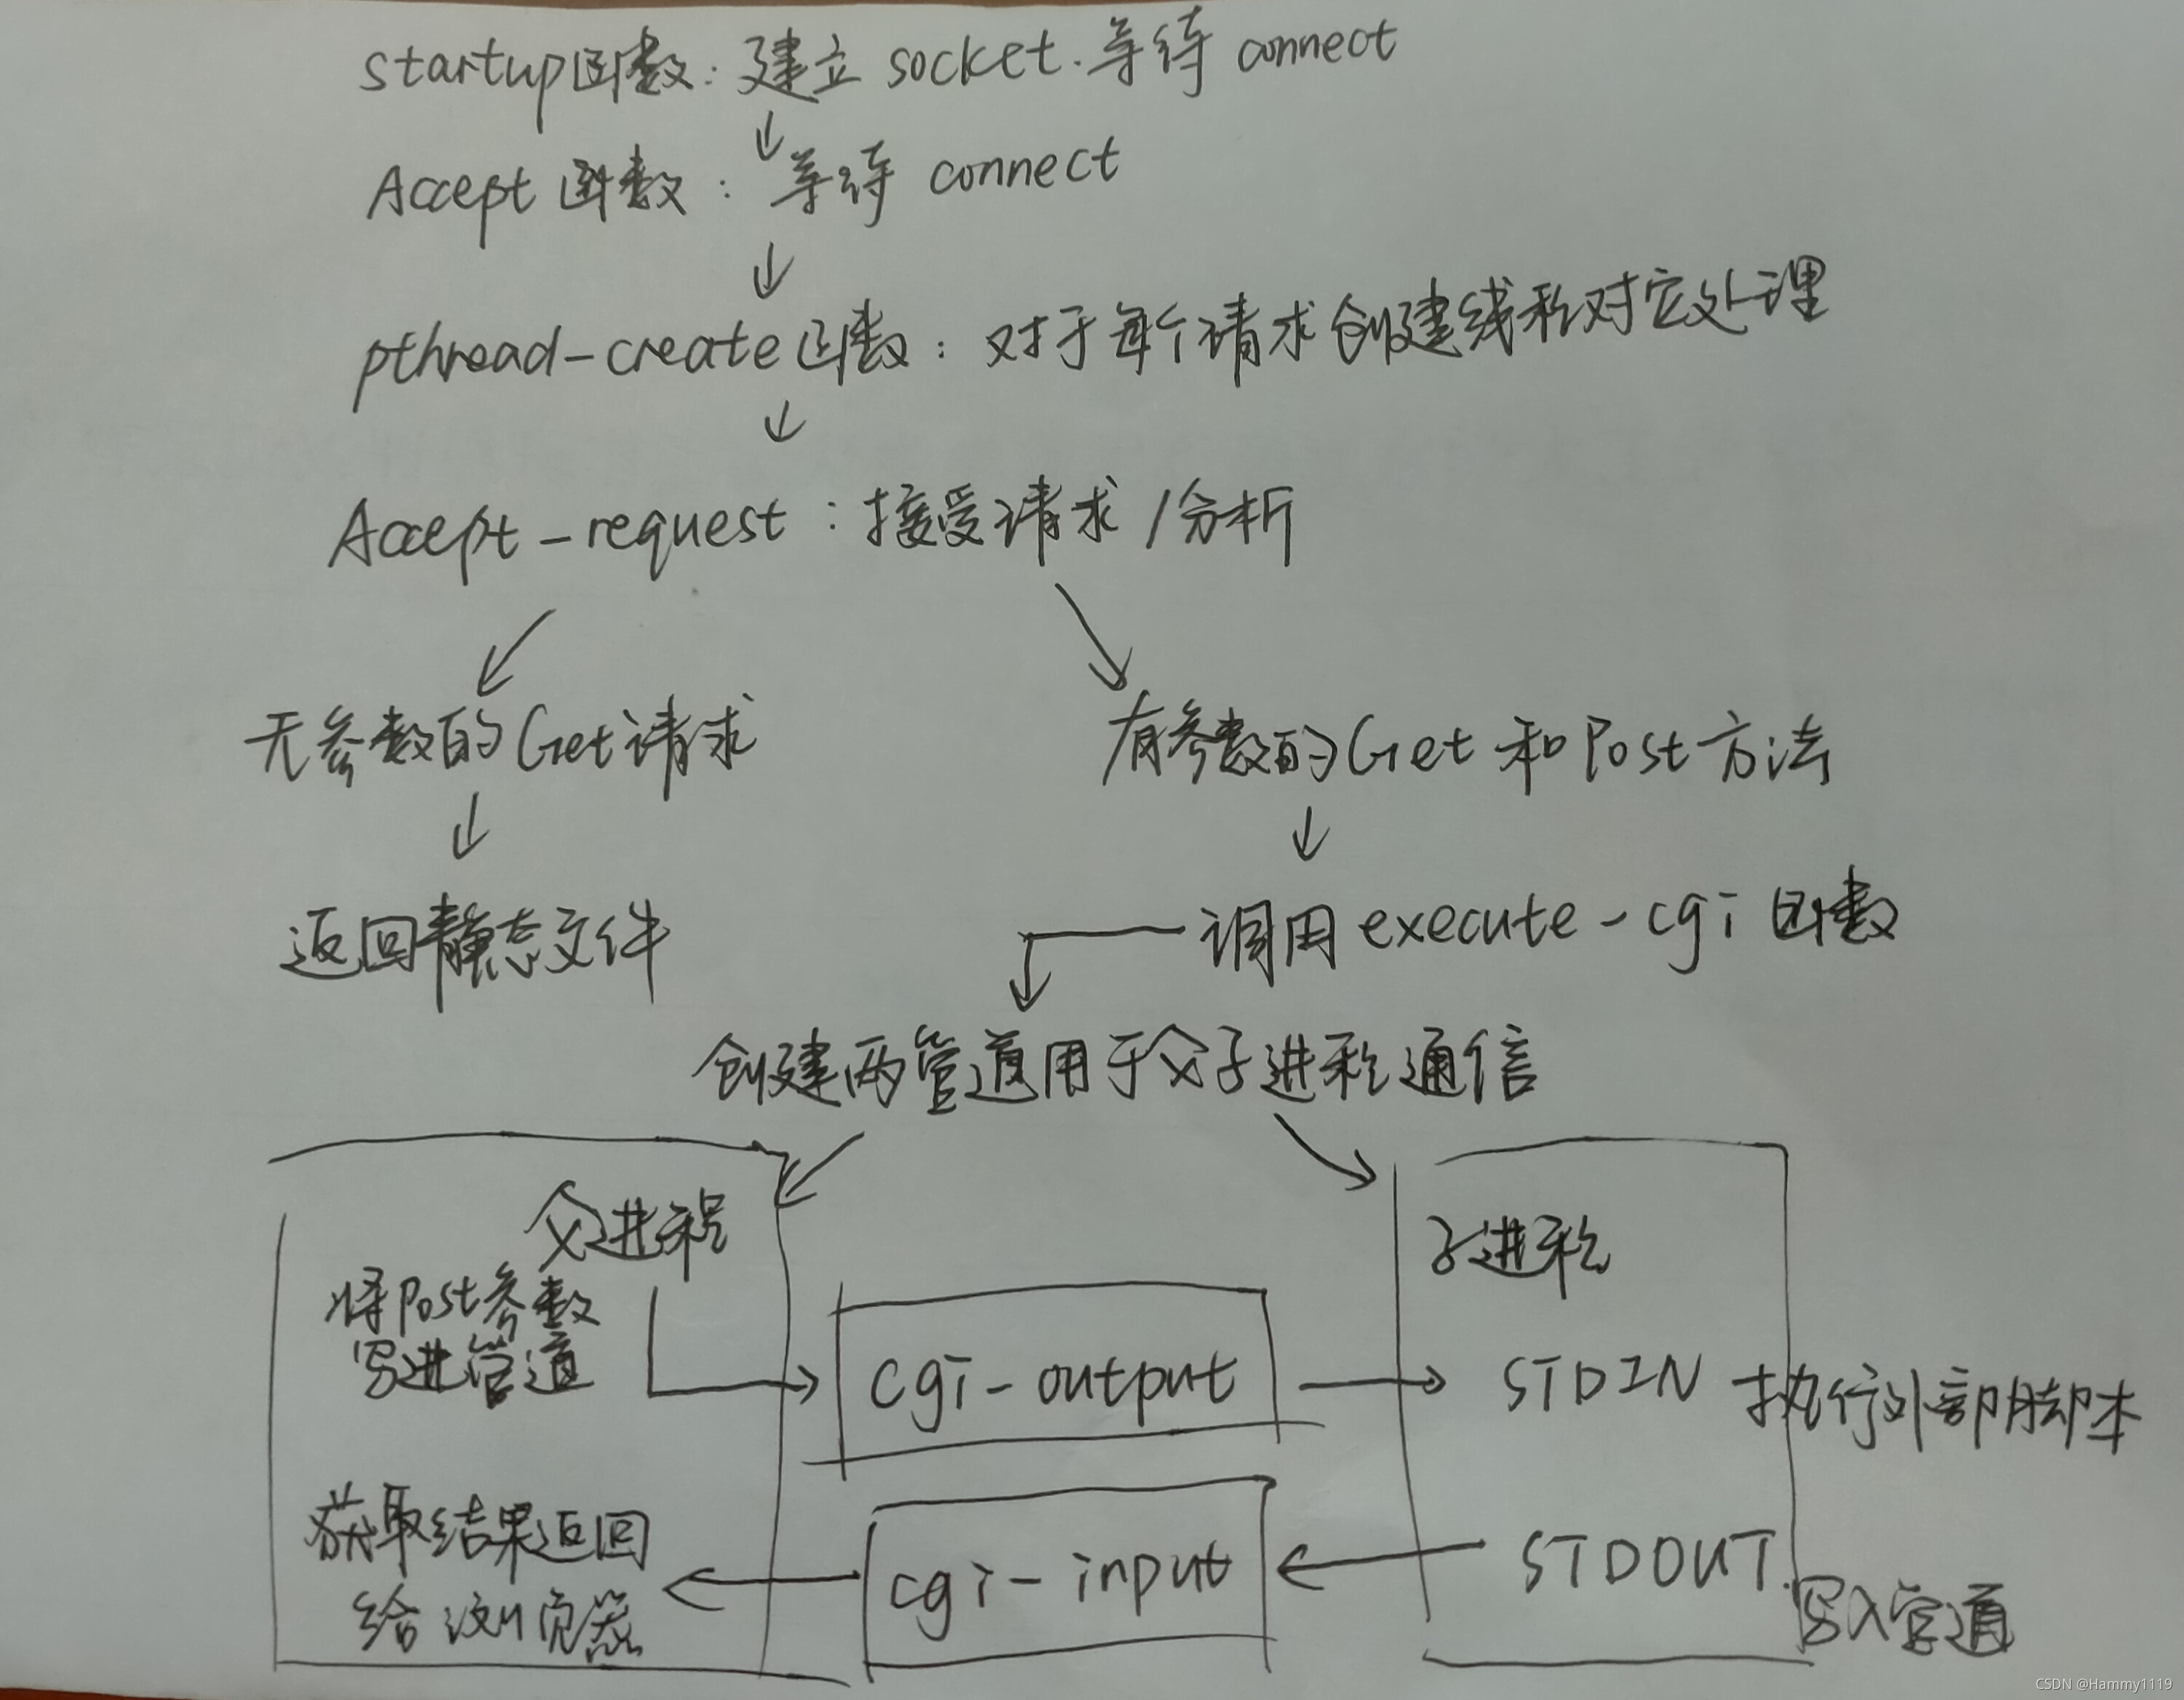 startup函数：建立 socket.等待 connect
Accept 函数：等待 connect
pthread-create函数：对于每个请求创建线程对它处理
Accept_request：接受请求/分析
无参数的Get请求
有参数的Get 和 Post 方法
返回静态文件
调用 execute-cgi 函数
创建两管道用于父子进程通信
父进程
子进程
将Post参数
写进管道
cgi-output
STDIN 执行外部脚本
获取结果返回
给浏览器
cgi-input
STDOUT.
写入管道
CSDN @Hammy1119